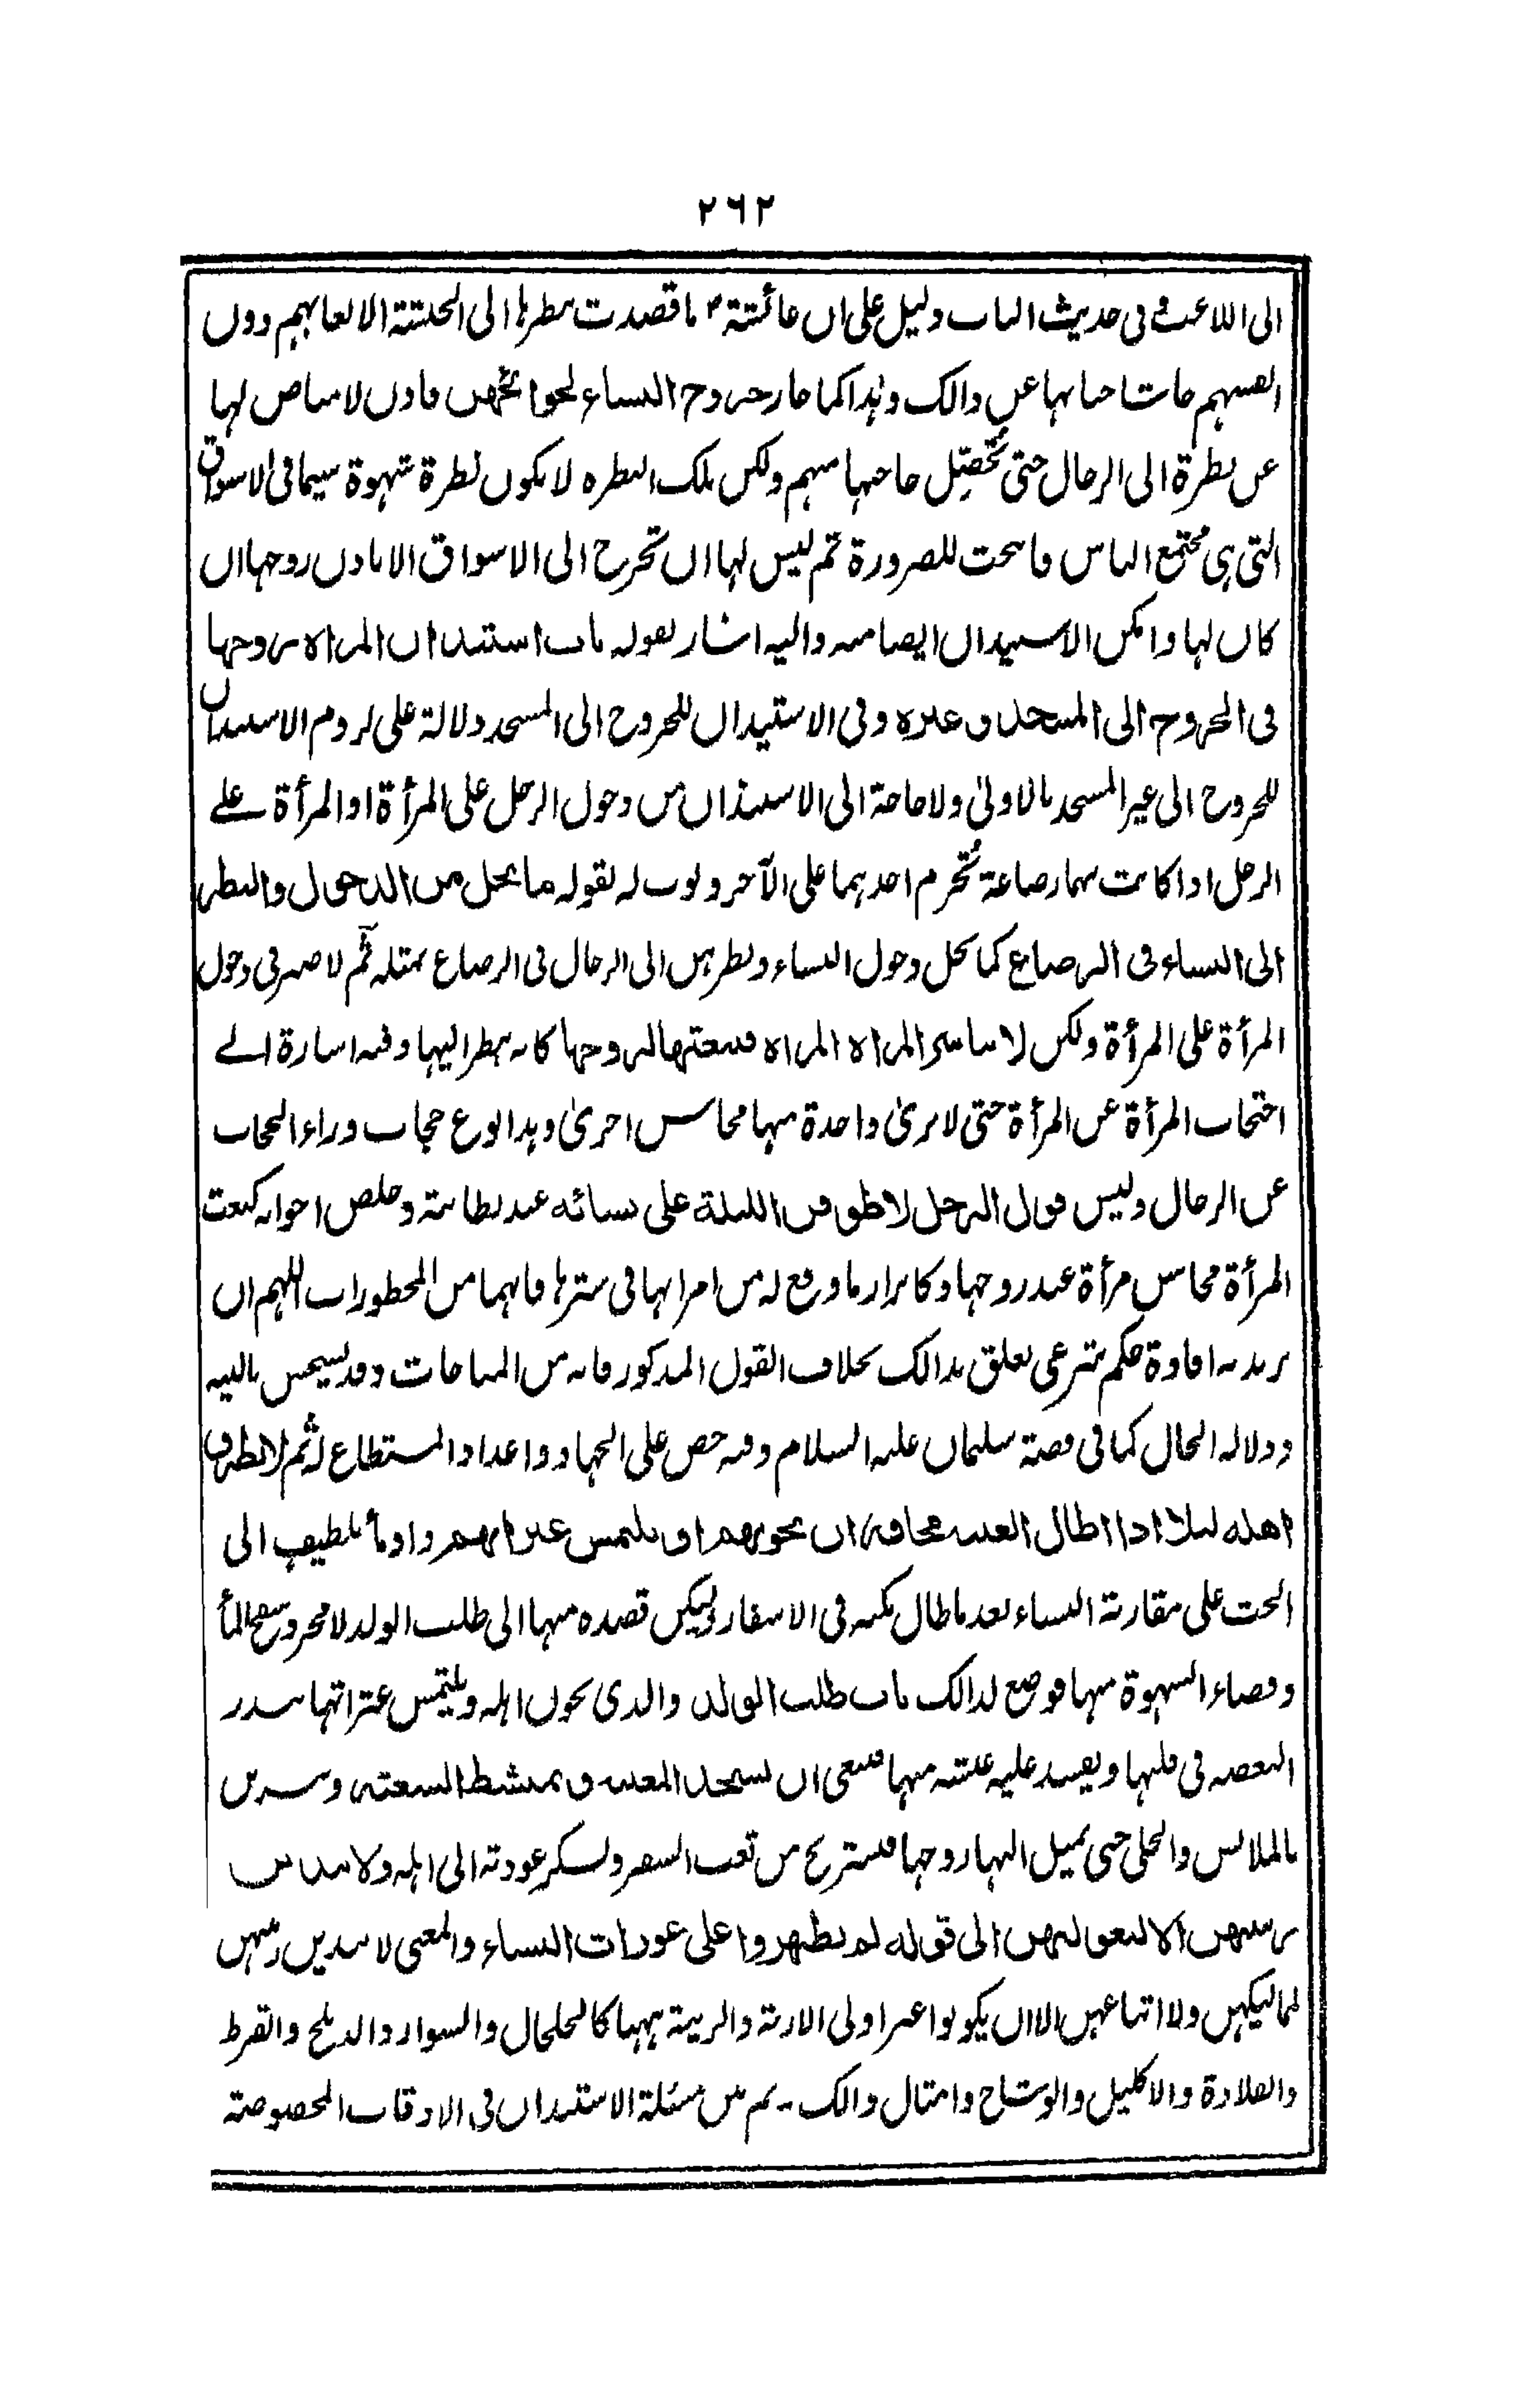 ٢٦٢
الى اللاعب فى حديث الباب دليل على ان عائشة ما قصدت بنظرها الى الحبشة الا لعابهم دون
انفسهم حاشا جنابها عن ذالك وهذا كما جاز خروج النساء لحوائجهن فاذن لا مناص لها
عن نظرة الى الرجال حتى تحصل حاجتها منهم ولكن تلك النظره لا يكون نظرة شهوة سيما فى الاسواق
التى هى مجتمع الناس فابيحت للضرورة ثم ليس لها ان تخرج الى الاسواق الا باذن زوجها ان
كان لها وامكن الاستيذان ايضا منه واليه اشار بقوله باب استئذان المراة زوجها
فى الخروج الى المسجد وغيره وفى الاستيذان للخروج الى المسجد دلالة على لزوم الاستيذان
للخروج الى غير المسجد بالاولىٰ ولا حاجة الى الاستيذان من دخول الرجل على المرأة او المرأة علے
الرجل اذا كانت بينهما رضاعة تُحرم احدهما على الآخر وبوب له بقوله ما يحل من الدخول والنظر
الى النساء فى الرضاع كما يحل دخول النساء ونظرهن الى الرجال فى الرضاع بمثله ثُم لا ضير فى دخول
المرأة على المرأة ولكن لا تباشر المراة المراة فتنعتها لزوجها كانه ينظر اليها وفيه اشارة الے
احتجاب المرأة عن المرأة حتى لا يرىٰ واحدة منها محاسن اخرىٰ وهذا نوع حجاب وراء الحجاب
عن الرجال وليس قول الرجل لاطوفن الليلة على نسائه عند بطانته وخلص اخوانه كنعت
المرأة محاسن مرأة عند زوجها وكابراز ما وقع له من امرأتها فى سترها فانهما من المحظورات اللهم ان
يريد به افادة حكم شرعى تعلق بذالك بخلاف القول المذكور فانه من المباحات وقد يستحسن بالنية
ودلالة الحال كما فى قصة سليمان عليه السلام وفيه حض على الجهاد واعداد المستطاع له ثُم لا يطرق
اهله ليلا اذا اطال الغيبة مخافة ان يخونهم او يلتمس عثراتهم واومأ بلطيف الى
الحث على مقاربة النساء بعد ما طال مكثه فى الاسفار وليكن قصده منها الى طلب الولد لا مجرد
وقضاء الشهوة منها فوضع لذالك باب طلب الولد والذى يخون اهله ويلتمس عثراتها
فى قلبها ويفسد عليه منها فينبغى ان تستحد المغيبة وتمتشط الشعثة
بالملابس والحلى حتى يميل اليها زوجها فيستريح من تعب السفر عودته الى اهله ولا يبدين
زينتهن الا لبعولتهن الى قوله لم يظهروا على عورات النساء والمعنى لا يبدين زينتهن
لماليكهن ولا اتباعهن الا ان يكونوا غير اولى الاربة والزينة ههنا كالخلخال والسوار والدملج والقرط
والقلادة والاكليل والوشاح وامثال ذالك - ثم من مسئلة الاستيذان فى الاوقات المخصوصة